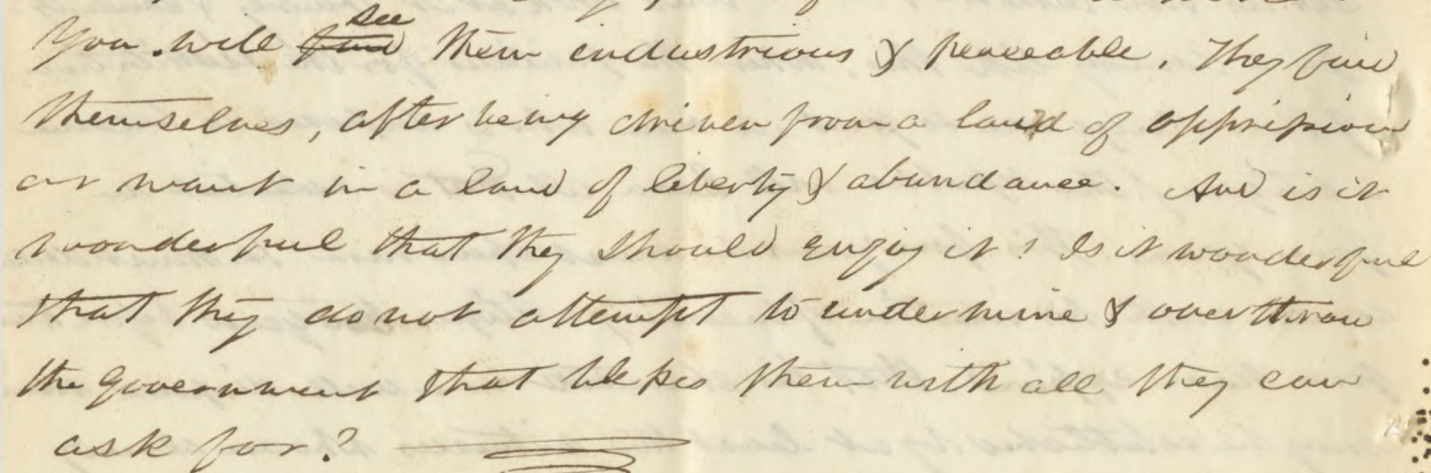 You will ~~find~~ see them industrious & peaceable. They find
themselves, after being driven from a land of oppression
or want in a land of liberty & abundance. And is it
wonderful that they should enjoy it? Is it wonderful
that they do not attempt to undermine & overthrow
the government that blesses them with all they can
ask for?